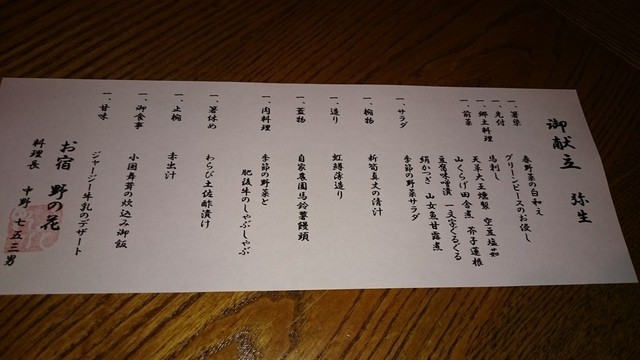 御献立 弥生
一、箸染 春野菜の白和え
一、先付 グリーンピースのお浸し
一、郷土料理 馬刺し
一、前菜 天草大王燻製 空豆塩茹 芥子蓮根
山くらげ田舎煮 一文字ぐるぐる
豆腐味噌漬
絹かつぎ 山女魚甘露煮
一、サラダ 季節の野菜サラダ
一、椀物 新筍真丈の清汁
一、造り 虹鱒薄造り
一、蓋物 自家農園馬鈴薯饅頭
一、肉料理 季節の野菜と
肥後牛のしゃぶしゃぶ
一、箸休め わらび土佐酢漬け
一、止椀 赤出汁
一、御食事 小国舞茸の炊込み御飯
一、甘味 ジャージー牛乳のデザート
お宿 野の花
料理長 中野 七五三男